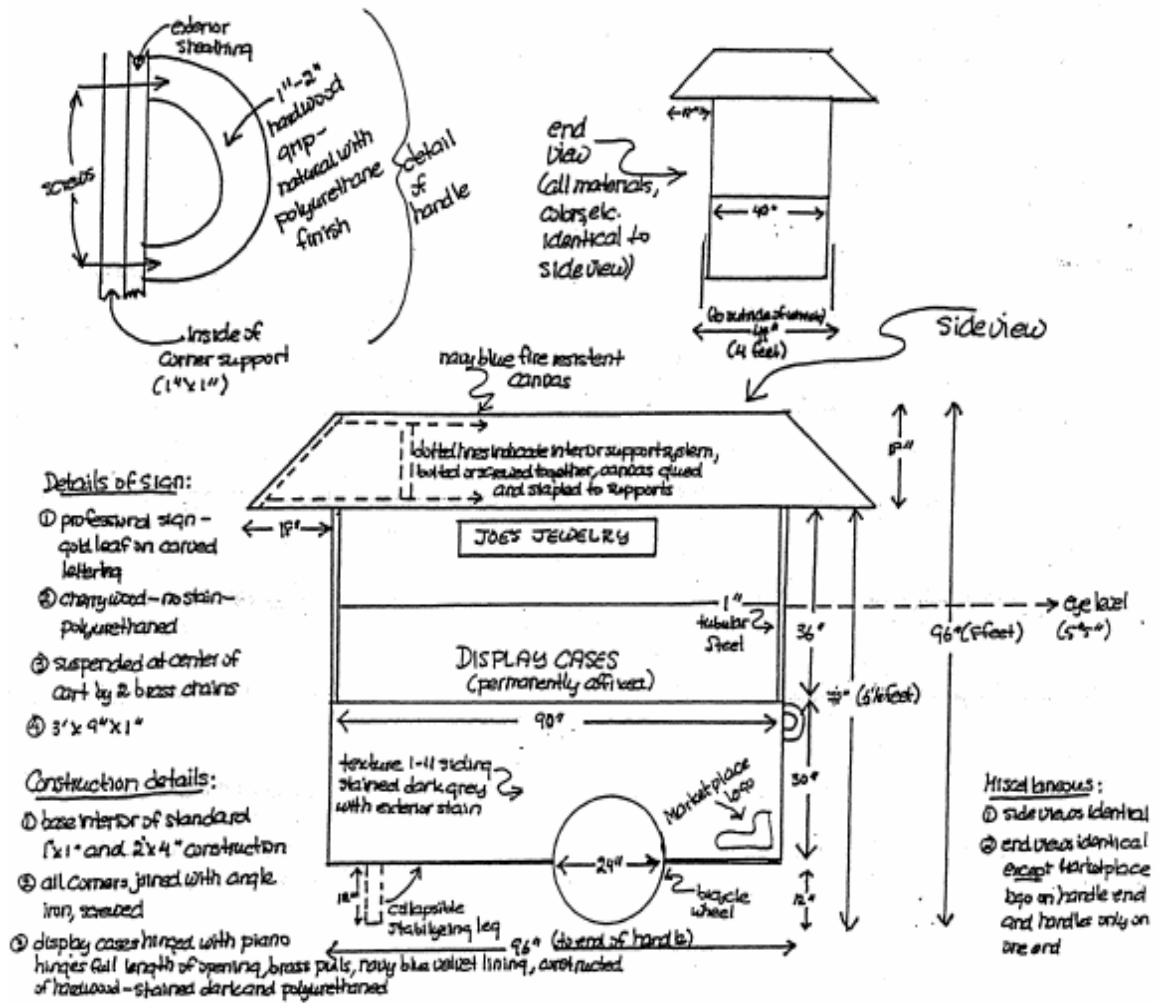 exterior
sheathing
1"-2"
hardwood
grip-
natural with
polyurethane
finish
screws
detail
of
handle
inside of
corner support
(1"x1")
end
view
(all materials,
colors, etc.
identical to
side view)
40"
(to outside of wheels)
48"
(4 feet)
side view
navy blue fire resistent
canvas
dotted lines indicate interior support system,
bolted or screwed together, canvas glued
and stapled to supports
18"
18"
JOE'S JEWELRY
1"
tubular
steel
36"
eye level
(5'5")
96" (8 feet)
(6½ feet)
DISPLAY CASES
(permanently affixed)
90"
texture 1-11 siding
stained dark grey
with exterior stain
Marketplace
logo
30"
24"
bicycle
wheel
12"
12"
collapsible
stabilyzing leg
96" (to end of handle)
Details of sign:
① professional sign-
gold leaf on carved
lettering
② cherry wood-no stain-
polyurethaned
③ suspended at center of
cart by 2 brass chains
④ 3' x 9" x 1"
Construction details:
① base interior of standard
1"x1" and 2"x4" construction
② all corners joined with angle
iron, screwed
③ display cases hinged with piano
hinges full length of opening, brass pulls, navy blue velvet lining, constructed
of hardwood-stained dark and polyurethaned
Miscellaneous:
① side views identical
② end views identical
except Marketplace
logo on handle end
and handles only on
one end